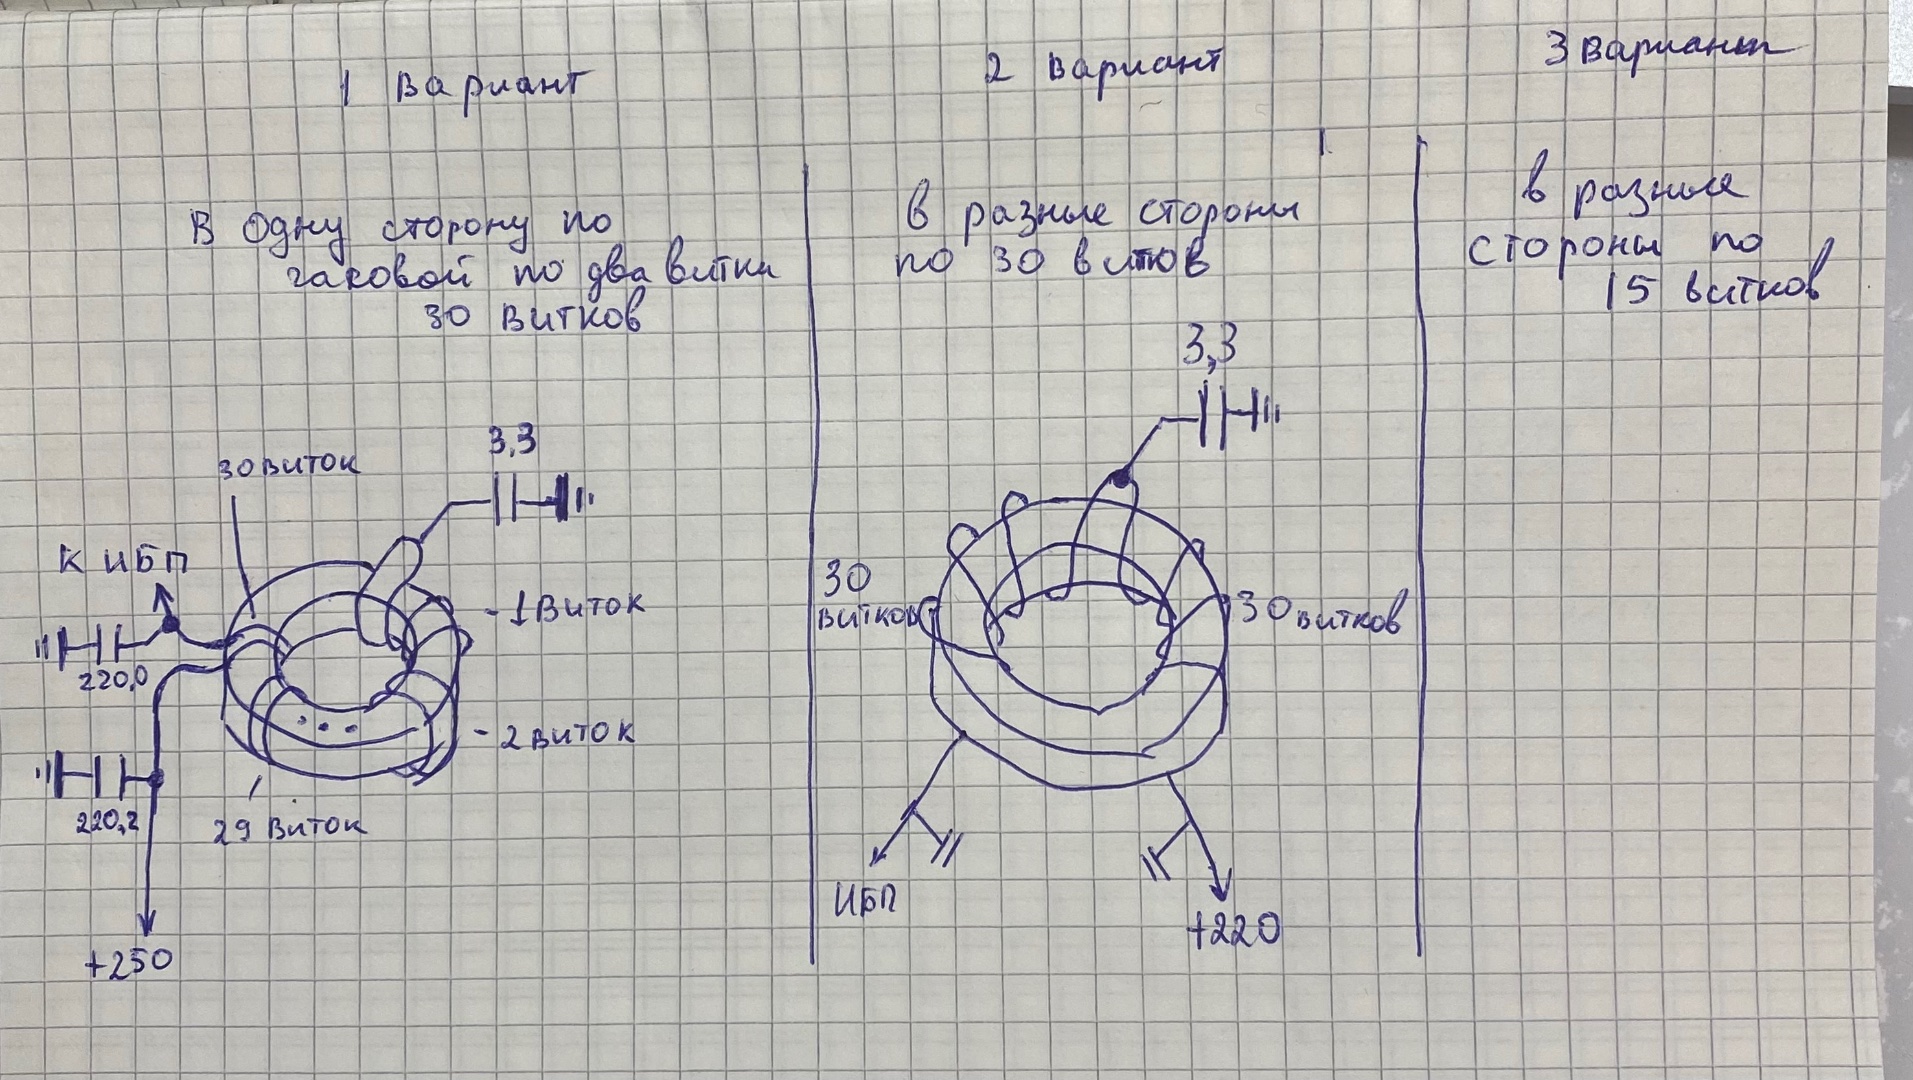 1 Вариант
В одну сторону по
гаковой по два витки
30 витков
30 виток
3,3
К ИБП
- 1 Виток
220,0
- 2 виток
220,2
29 Виток
+250
2 вариант
в разные стороны
по 30 витков
3,3
30
витков
30 витков
ИБП
+220
3 вариант
в разные
стороны по
15 витков